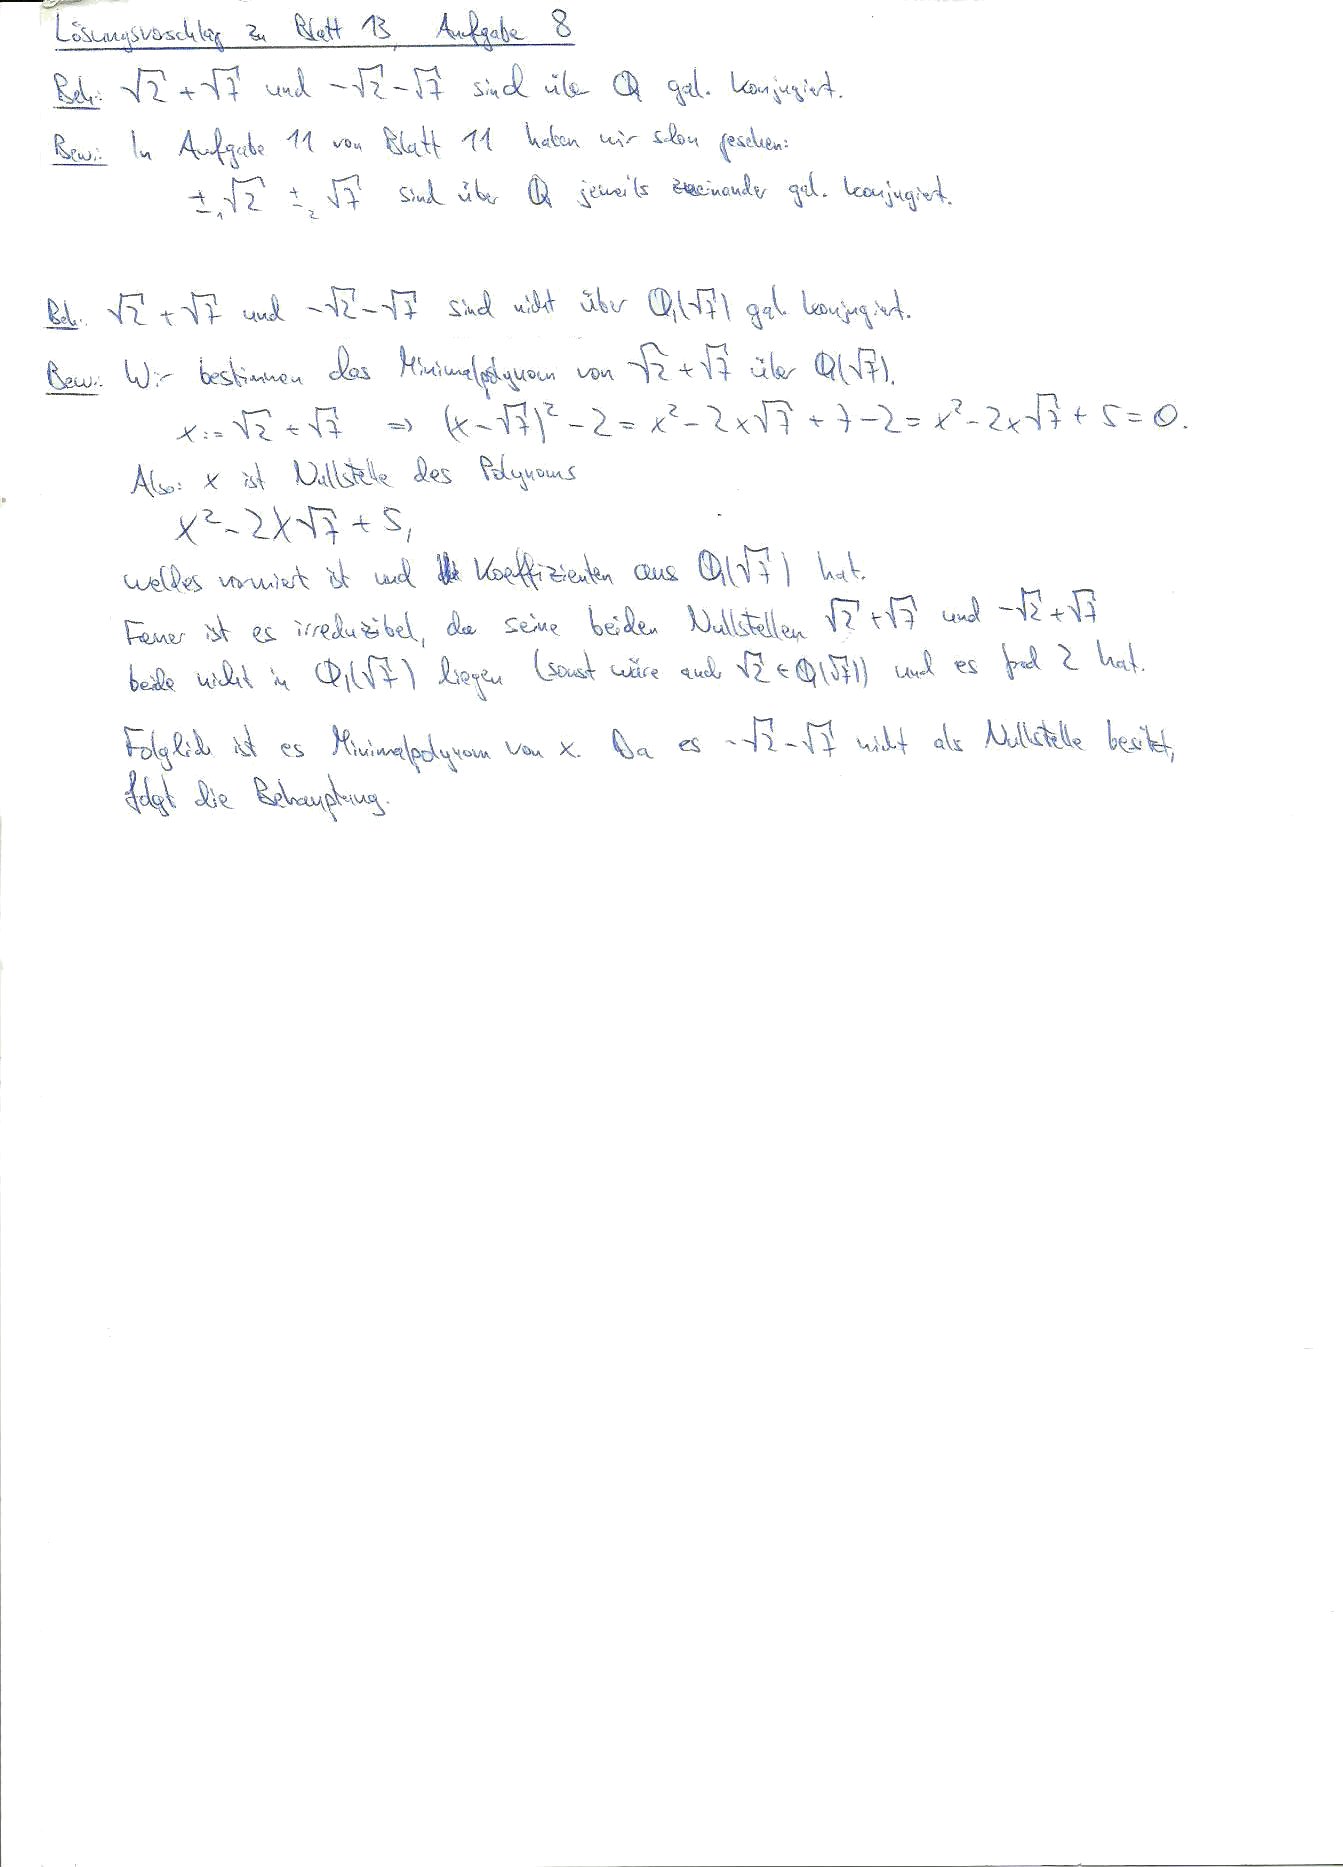 Lösungsvorschlag zu Blatt 13, Aufgabe 8
Beh.: √2 + √7 und -√2 - √7 sind über ℚ gal. konjugiert.
Bew.: In Aufgabe 11 von Blatt 11 haben wir schon gesehen:
±₁√2 ±₂√7 sind über ℚ jeweils zueinander gal. konjugiert.
Beh.: √2 + √7 und -√2 - √7 sind nicht über ℚ(√7) gal. konjugiert.
Bew.: Wir bestimmen das Minimalpolynom von √2 + √7 über ℚ(√7).
x := √2 + √7 ⇒ (x - √7)² - 2 = x² - 2x√7 + 7 - 2 = x² - 2x√7 + 5 = 0.
Also: x ist Nullstelle des Polynoms
X² - 2X√7 + 5,
welches normiert ist und Koeffizienten aus ℚ(√7) hat.
Ferner ist es irreduzibel, da seine beiden Nullstellen √2 + √7 und -√2 + √7
beide nicht in ℚ(√7) liegen (sonst wäre auch √2 ∈ ℚ(√7)) und es Grad 2 hat.
Folglich ist es Minimalpolynom von x. Da es -√2 - √7 nicht als Nullstelle besitzt,
folgt die Behauptung.